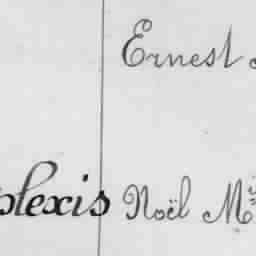 Ernest
plexis Noël M